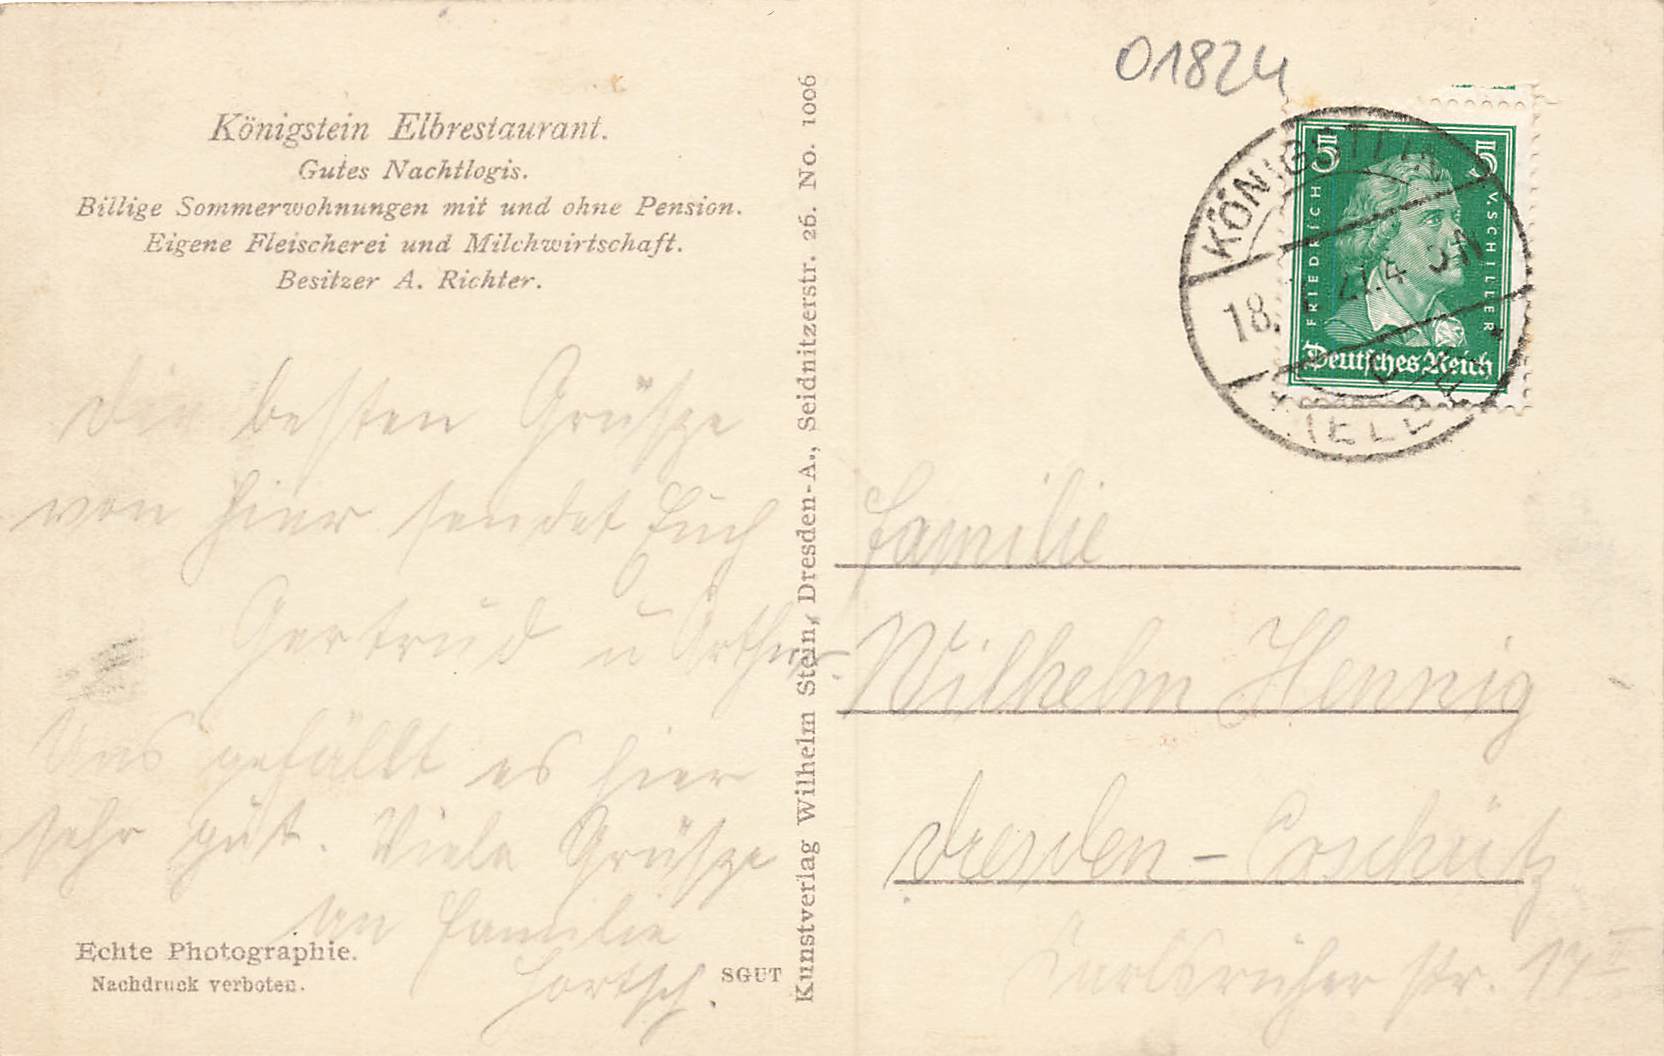 Königstein Elbrestaurant.
Gutes Nachtlogis.
Billige Sommerwohnungen mit und ohne Pension.
Eigene Fleischerei und Milchwirtschaft.
Besitzer A. Richter.
Die besten Grüsze
von hier sendet Euch
Gertrud u Arthur.
Uns gefällt es hier
sehr gut. Viele Grüsze
an Familie
Hortsch.
Echte Photographie.
Nachdruck verboten.
SGUT
Kunstverlag Wilhelm Stein, Dresden-A., Seidnitzerstr. 26. No. 1006
01824
5 5
FRIEDRICH V. SCHILLER
Deutsches Reich
KÖNIGSTEIN
18. 4 5N
(ELBE)
Familie
Wilhelm Hennig
Dresden-Coschütz
Karlsruher Str. 17 II